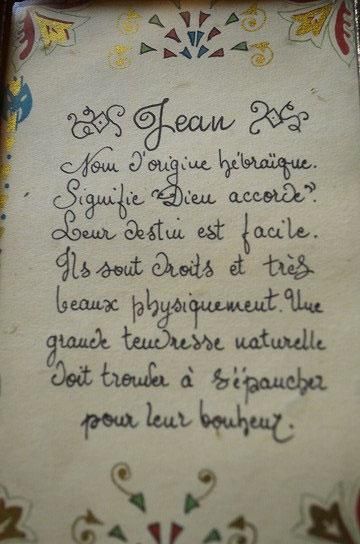 Jean
Nom d'origine hébraïque.
Signifie "Dieu accorde".
Leur destin est facile.
Ils sont droits et très
beaux physiquement. Une
grande tendresse naturelle
doit trouver à s'épancher
pour leur bonheur.